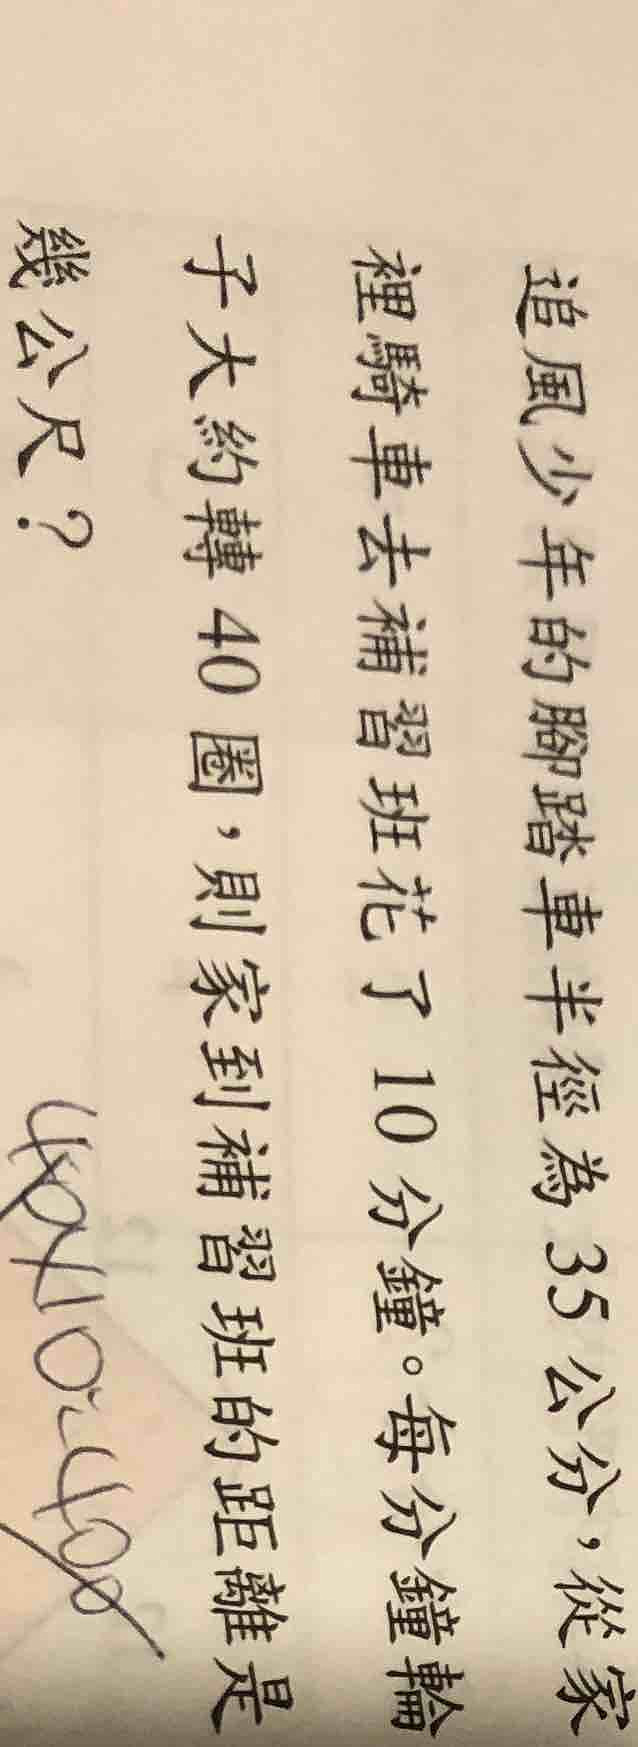 追風少年的腳踏車半徑為 35 公分，從家
裡騎車去補習班花了 10 分鐘。每分鐘輪
子大約轉 40 圈，則家到補習班的距離是
幾公尺？
40×10=400